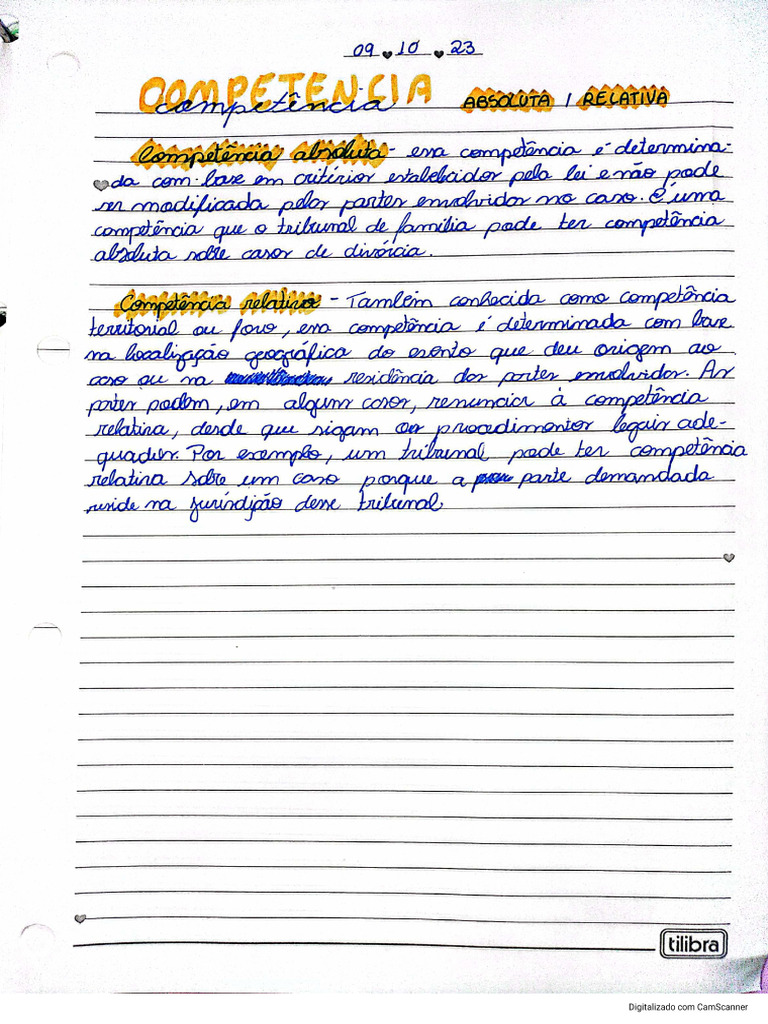 09 10 23
COMPETENCIA
competência ABSOLUTA / RELATIVA
Competência absoluta - essa competência é determina-
da com base em critérios estabelecidos pela lei e não pode
ser modificada pelas partes envolvidas no caso. É uma
competência que o tribunal de família pode ter competência
absoluta sobre casos de divórcio.
Competência relativa - Também conhecida como competência
territorial ou foro, essa competência é determinada com base
na localização geográfica do evento que deu origem ao
caso ou na residência das partes envolvidas. As
partes podem, em alguns casos, renunciar à competência
relativa, desde que sigam os procedimentos legais ade-
quados. Por exemplo, um tribunal pode ter competência
relativa sobre um caso porque a parte demandada
reside na jurisdição desse tribunal
tilibra
Digitalizado com CamScanner